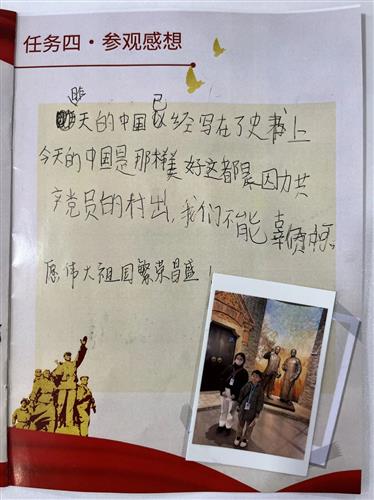 任务四·参观感想
昨
已
天的中国以经写在了史书上
今天的中国是那样美好这都是因力共
产党员的村出,我们不能辜负
愿伟大祖国繁荣昌盛!